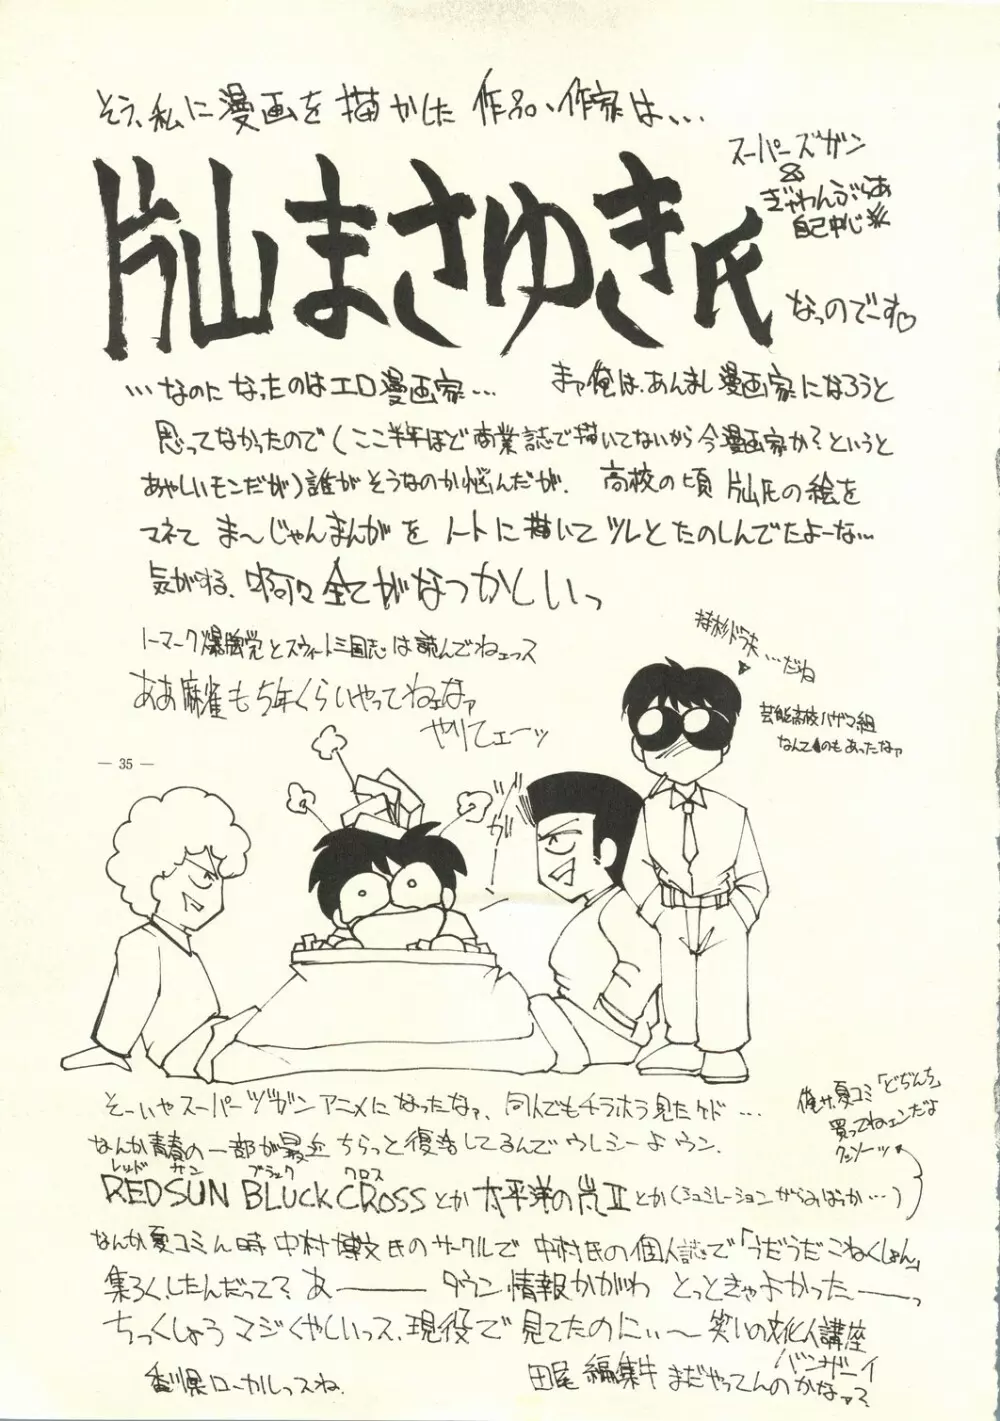 そう、私に漫画を描かした作品、作家は、、、
片山まさゆき氏
スーパーズガン
&
ぎゃわんぶらあ
自己中心派
なっのでーす♡
…なのになったのはエロ漫画家… まァ俺は、あんまし漫画家になろうと
思ってなかったので(ここ半年ほど商業誌で描いてないから今漫画家か?というと
あやしいモンだが)誰がそうなのか悩んだが、高校の頃片山氏の絵を
マネて ま〜じゃんまんがを ノートに描いて ツレと たのしんでたよーな…
気がする、 全てがなつかしいっ
トーマーク爆牌党とスウィート三国志は読んでねェっス
ああ麻雀も5年くらいやってねェなァ
やりてェーッ
持杉ドラ夫…だね
芸能高校ハザマ組
なんてのもあったなァ
— 35 —
ガ
そーいやスーパーヅガンアニメになったなァ、同人でもチラホラ見たケド…
なんか青春の一部が最近ちらっと復活してるんでウレシーよウン.
レッド サン ブラック クロス
REDSUN BLUCKCROSSとか太平洋の嵐Ⅱとか(シュミレーションがらみばっか…)
俺サ、夏コミ「どぢんち」
買ってねェンだよ
クッソーッ
なんか夏コミん時中村博文氏のサークルで 中村氏の個人誌で「うだうだこねくしょん」
集ろくしたんだって? あ―― タウン情報かがわ とっときゃよかった――っ
ちっくしょうマジくやしいっス、現役で見てたのにぃ〜 笑いの文化人講座
バンザーイ
香川県ローカルっスね.
田尾編集牛まだやってんのかなァ?